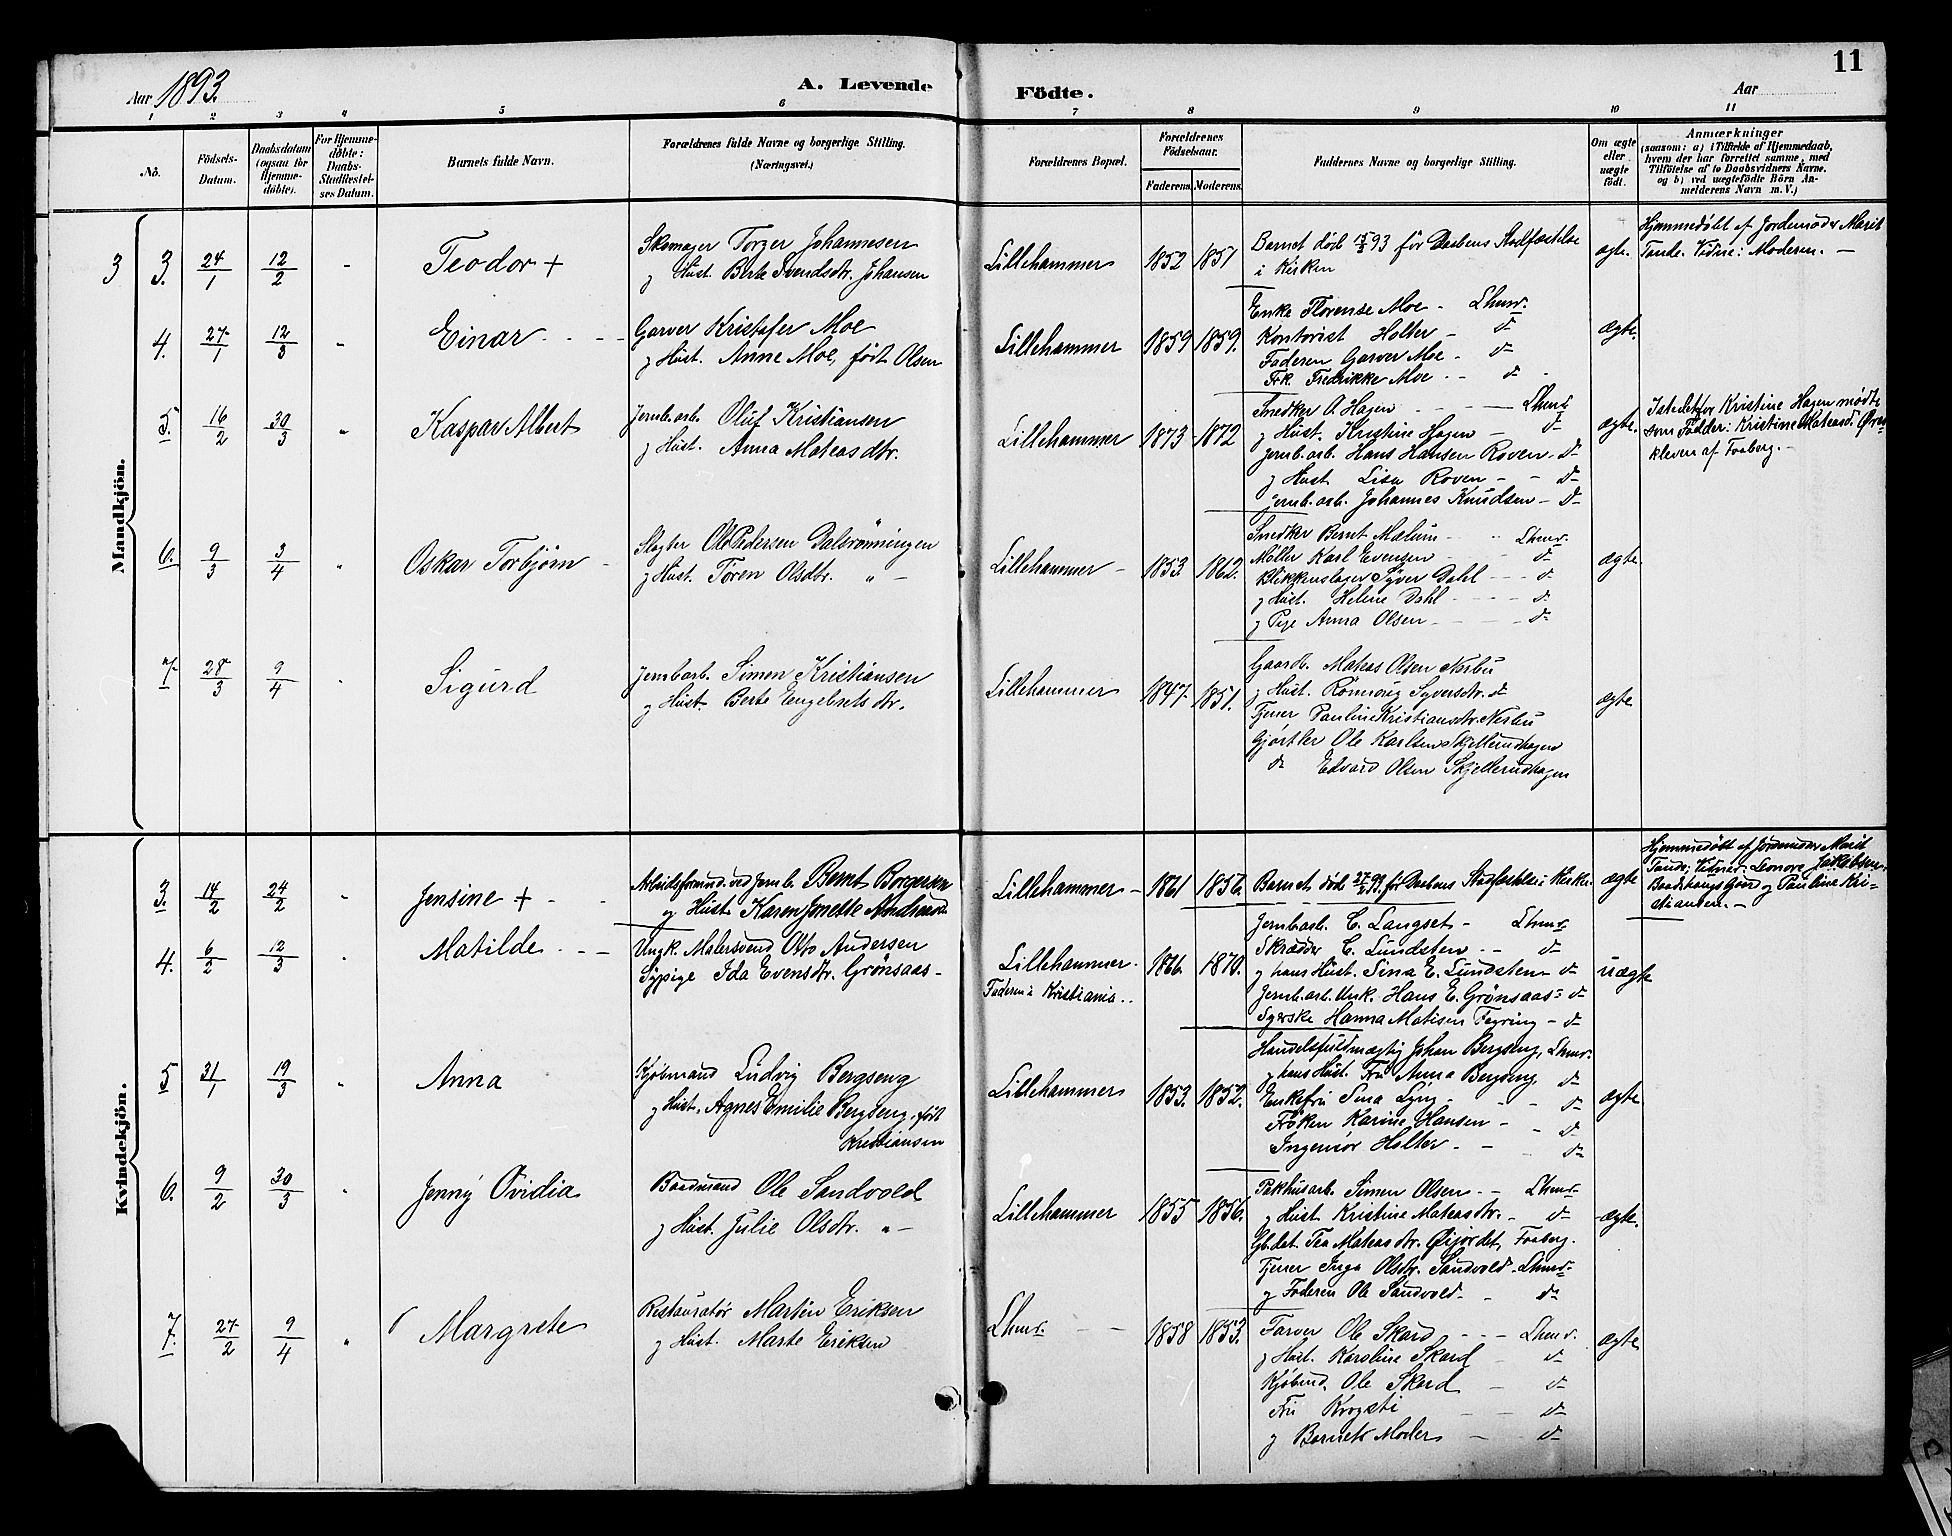 11
Aar 1893.
A. Levende Födte.
Aar
1 2 3 4 5 6 7 8 9 10 11
No.
Födsels-Datum.
Daabsdatum (ogsaa for Hjemmedöbte).
For Hjemmedöbte: Daabs-Stadfæstelses Datum.
Barnets fulde Navn.
Forældrenes fulde Navne og borgerlige Stilling.
(Næringsvei.)
Forældrenes Bopæl.
Forældrenes Födselsaar.
Faderens. Moderens.
Faddernes Navne og borgerlige Stilling.
Om ægte eller uægte födt.
Anmærkninger
(saasom: a) i Tilfælde af Hjemmedaab,
hvem der har forrettet samme, med
Tilföielse af to Daabsvidners Navne.
og b) ved uægtefödte Börn An-
melderens Navn m. V.)
Mandkjön.
3 3. 24/1 12/2 - Teodor +
Skomager Torger Johannesen
og Hust. Berte Svendsdtr. Johansen
Lillehammer 1852 1851
Barnet død 15/2 93 før Daabens Stadfæstelse
i Kirken
ægte.
Hjemmedøbt af Jordemoder Marit
Tande. Vidne: Moderen. —
4. 27/1 12/3 " Einar
Garver Kristofer Moe
og Hust. Anne Moe, født Olsen
Lillehammer 1859 1859.
Enke Florense Moe - Lhmr.
Kontorist Holter - d-
Faderen Garver Moe - d-
Frk. Fredrikke Moe - d-
ægte.
5. 16/2 30/3 " Kaspar Albert
Jernb.arb. Oluf Kristiansen
og Hust. Anna Mateasdtr.
Lillehammer 1873 1872
Snedker A. Hagen - Lhmr
og Hust. Kristine Hagen - d-
Jernb.arb. Hans Hansen Roven - d-
og Hust. Lisa Roven - d-
Jernb.arb. Johannes Knudsen - d-
ægte.
Istedetfor Kristine Hagen mødte
som Fadder: Kristine Mateasd.
kleven af Faaberg. -
6. 9/3 3/4 " Oskar Torbjørn
Slagter Ole Pedersen Dalsrønningen
og Hust. Tøren Olsdtr. " -
Lillehammer - 1853. 1862.
Snedker Bernt Mælum - Lhmr.
Møller Karl Evensen - d-
Blikkenslager Syver Dahl - d-
og Hust. Helene Dahl - d-
og Pige Anna Olsen - d-
ægte.
7. 28/3 9/4 " Sigurd
Jernb.arb. Simen Kristiansen
og Hust. Berte Engebretsdtr.
Lillehammer 1847. 1851.
Gaardb. Mateas Olsen Nesbu
og Hust. Rønnaug Syversdtr. d-
Tjener Pauline Kristiansdtr. Nesbu
Gjørtler Ole Karlsen Skjellerudhagen
d- Edvard Olsen Skjellerudhagen
ægte
Kvindekjön.
3. 14/2 24/2 " Jensine +
Arbeidsformand ved Jernb. Bernt Borgersen
og Hust. Karen Jonette
Lillehammer - 1861 1856.
Barnet død 27/2 93 før Daabens Stadfæstelse i Kirken
ægte
Hjemmedøbt af Jordemoder Marit
Tande; Vidner: Leonore Jakobsen
og Pauline Kri-
stiansen. -
4. 6/2 12/3 " Matilde
Ungk. Malersvend Otto Andersen
Sypige Ida Evensdtr. Grønsaas -
Lillehammer.
Faderen i Kristiania.
1866. 1870.
Jernb.arb. C. Langset - Lhmr
Skrædder C. Lundsten - d-
og hans Hust. Sina E. Lundsten - d-
Jernb.arb. Unk. Hans E. Grønsaas - d-
Syerske Hanna Matisen Fagring - d-
uægte
5 31/1 19/3 " Anna
Kjøbmand Ludvig Bergseng
og Hust. Agnes Emilie Bergseng, født
Kristiansen
Lillehammer 1853. 1852.
Handelsfuldmægtig Johan Bergseng, Lhmr.
og hans Hust. Fru Anna Bergseng d-
Enkefru Sina Lyng - d-
Frøken Karine Hansen - d-
Ingeniør Holter - d-
ægte
6. 9/2 30/3 " Jenny Ovidia
Baadmand Ole Sandvold
og Hust. Julie Olsdtr. " -
Lillehammer 1855 1856.
Pakhusarb. Simen Olsen - Lhmr
og Hust. Kristine Mateasdtr. - d-
Gb.dat. Tea Mateasdtr. Øijordet, Faaberg.
Tjener Inga Olsdtr. Sandvold - Lhmr.
og Faderen Ole Sandvold - d-
ægte.
7. 27/2 9/4 " Margrete
Restauratør Martin Eriksen
og Hust. Marte Eriksen
Lhmr. 1858 1853.
Farver Ole Skard - Lhmr.
og Hust. Karoline Skard - d-
Kjøbmd. Ole Skard - d-
Fru Krogsti - d-
og Barnets Moder - d-
ægte